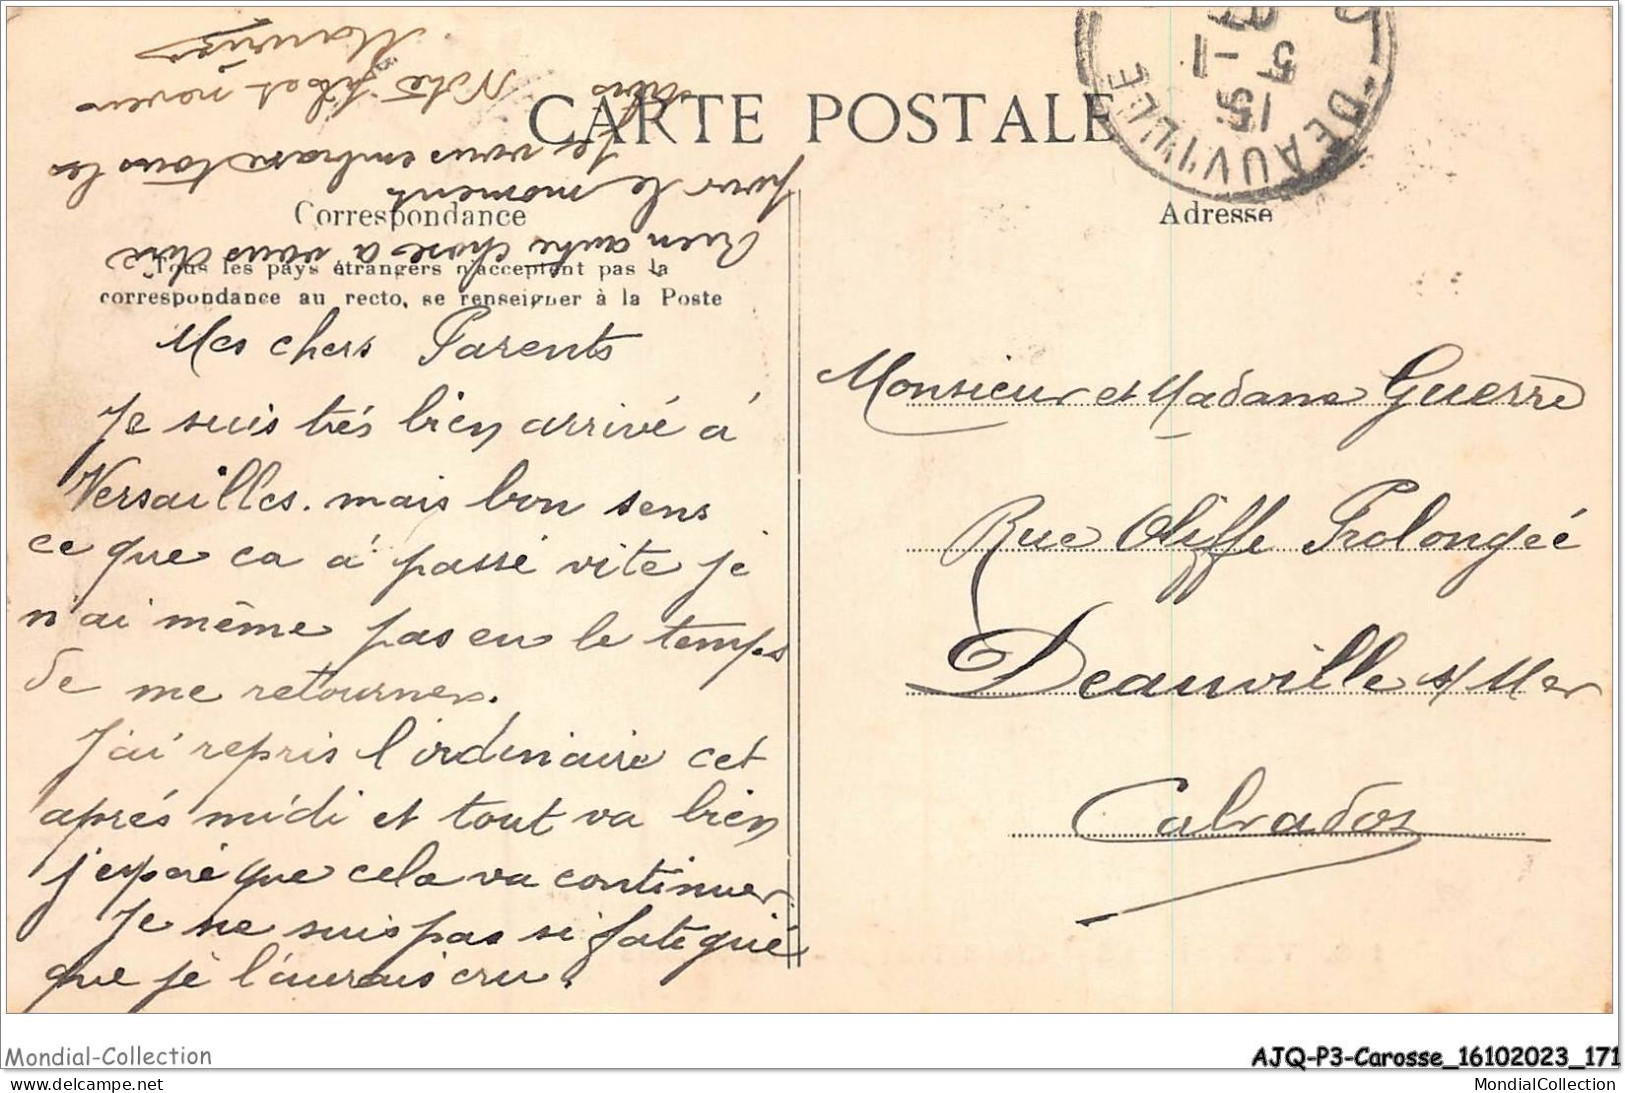 CARTE POSTALE
Correspondance
Adresse
Tous les pays étrangers n'acceptent pas la
correspondance au recto, se renseigner à la Poste
Mes chers Parents
Je suis trés bien arrivé á
Versailles. mais bon sens
ce que ca á passé vite je
n'ai même pas eu le temps
de me retourner.
J'ai repris l'ordinaire cet
aprés midi et tout va bien
j'espére que cela va continuer
Je ne suis pas si fatigué
que je l'aurais cru.
Rien autre chose a vous dire
pour le moment
Je vous embrasse tous les
Votre fils et neveu
Maurice
Monsieur et Madame Guerre
Rue Oliffe Prolongée
Deauville s/ Mer
Calvados
DEAUVILLE
15
5 - 1
Mondial-Collection
AJQ-P3-Carosse_16102023_171
© delcampe.net
MondialCollection